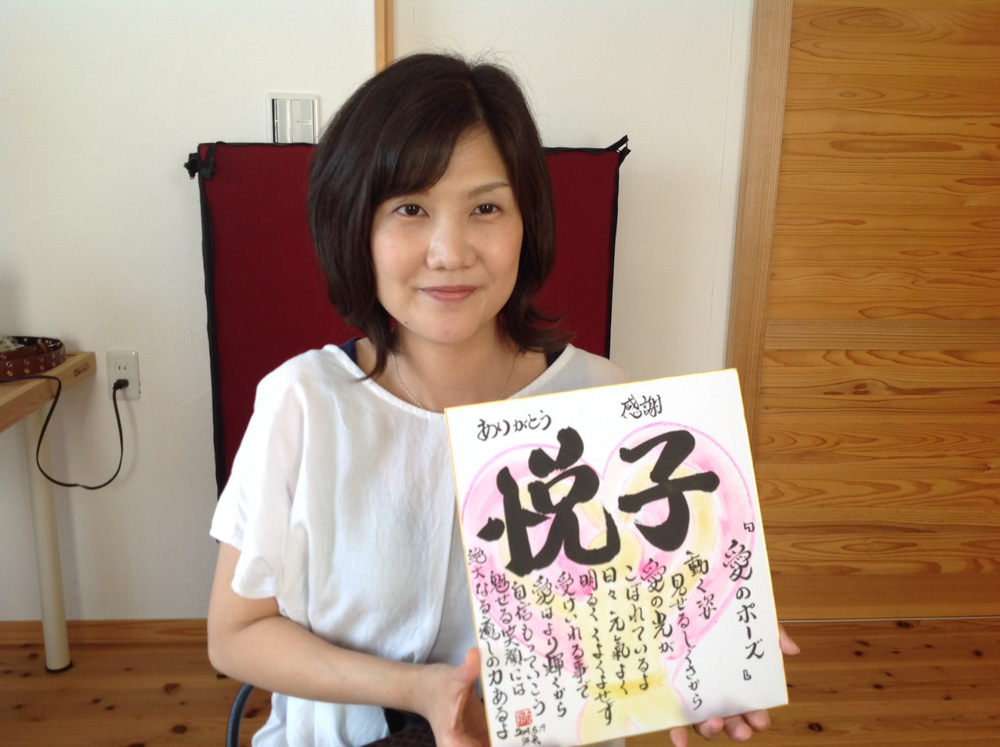 ありがとう
感謝
悦子
『愛のポーズ』
動く姿
見せるしぐさから
愛の光が
こぼれているよ
日々元氣よく
明るくくよくよせず
受けいれる事で
愛はより輝くから
自信もっていこう
魅せる笑顔には
絶大なる癒しの力あるよ